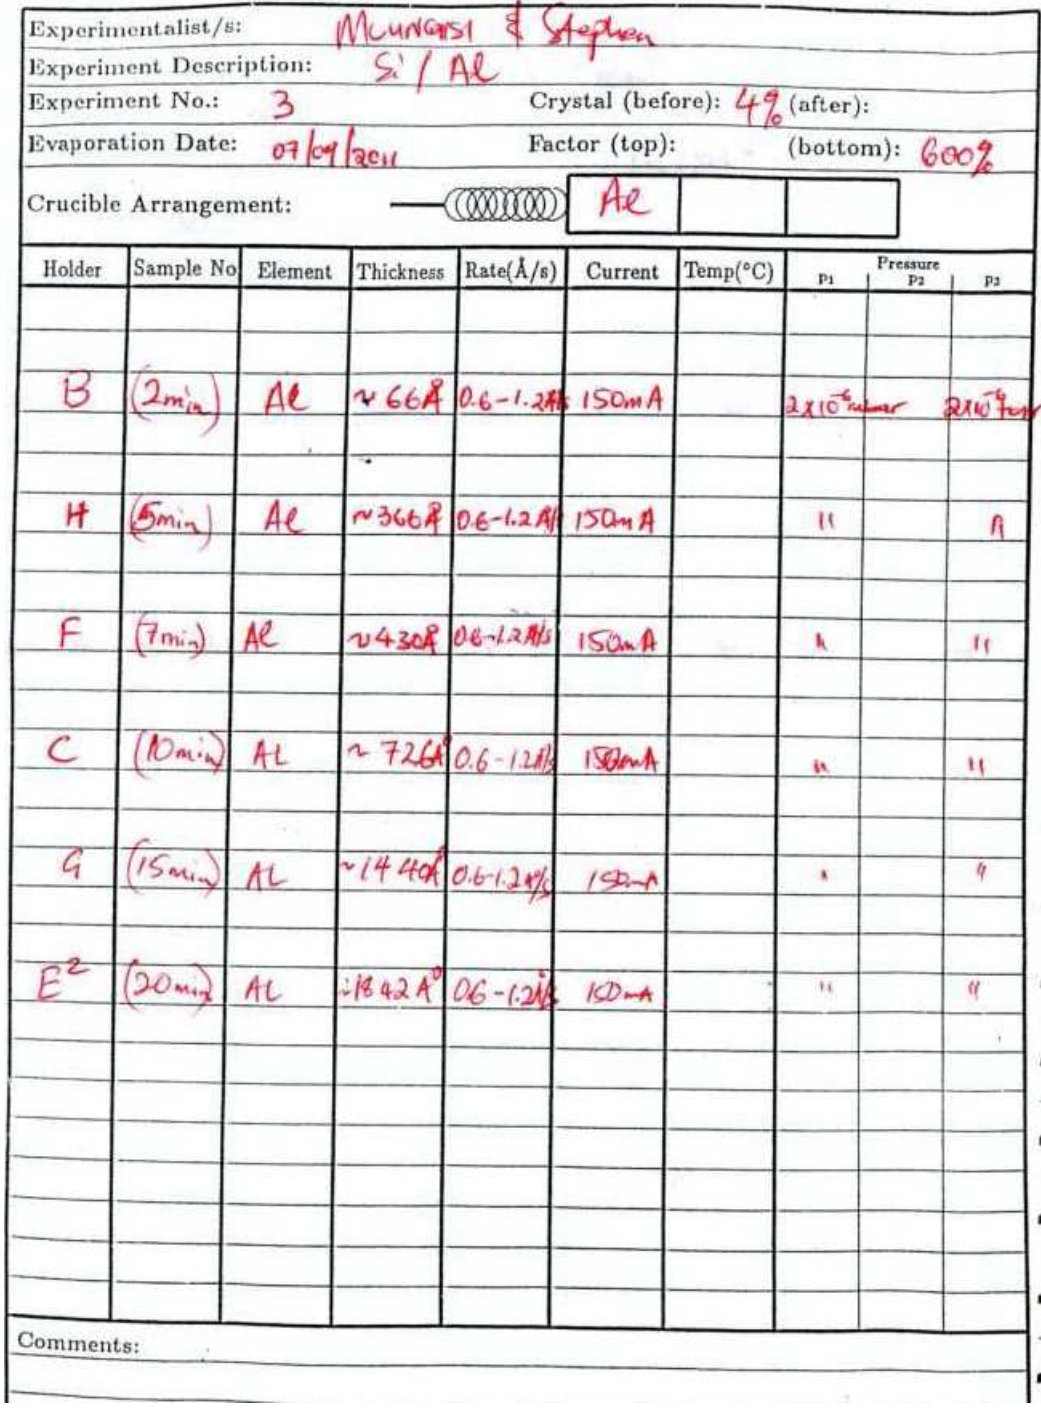 Experimentalist/s: & Stephen
Experiment Description: Si / Al
Experiment No.: 3 Crystal (before): 4% (after):
Evaporation Date: 07/09/2011 Factor (top): (bottom): 600%
Crucible Arrangement: Al
Holder Sample No Element Thickness Rate(Å/s) Current Temp(°C) Pressure
P1 P2 P3
B (2min) Al ~66Å 0.6-1.2Å/s 150mA 2x10⁻⁶ 2x10⁻⁶
H (5min) Al ~366Å 0.6-1.2Å/ 150mA " "
F (7min) Al ~430Å 0.6-1.2Å/s 150mA " "
C (10min) AL ~726Å 0.6-1.2Å/s 150mA " "
G (15min) AL ~1440Å 0.6-1.2Å/s 150mA " "
E² (20min) AL ~1842Å 06-1.2Å/s 150mA " "
Comments: